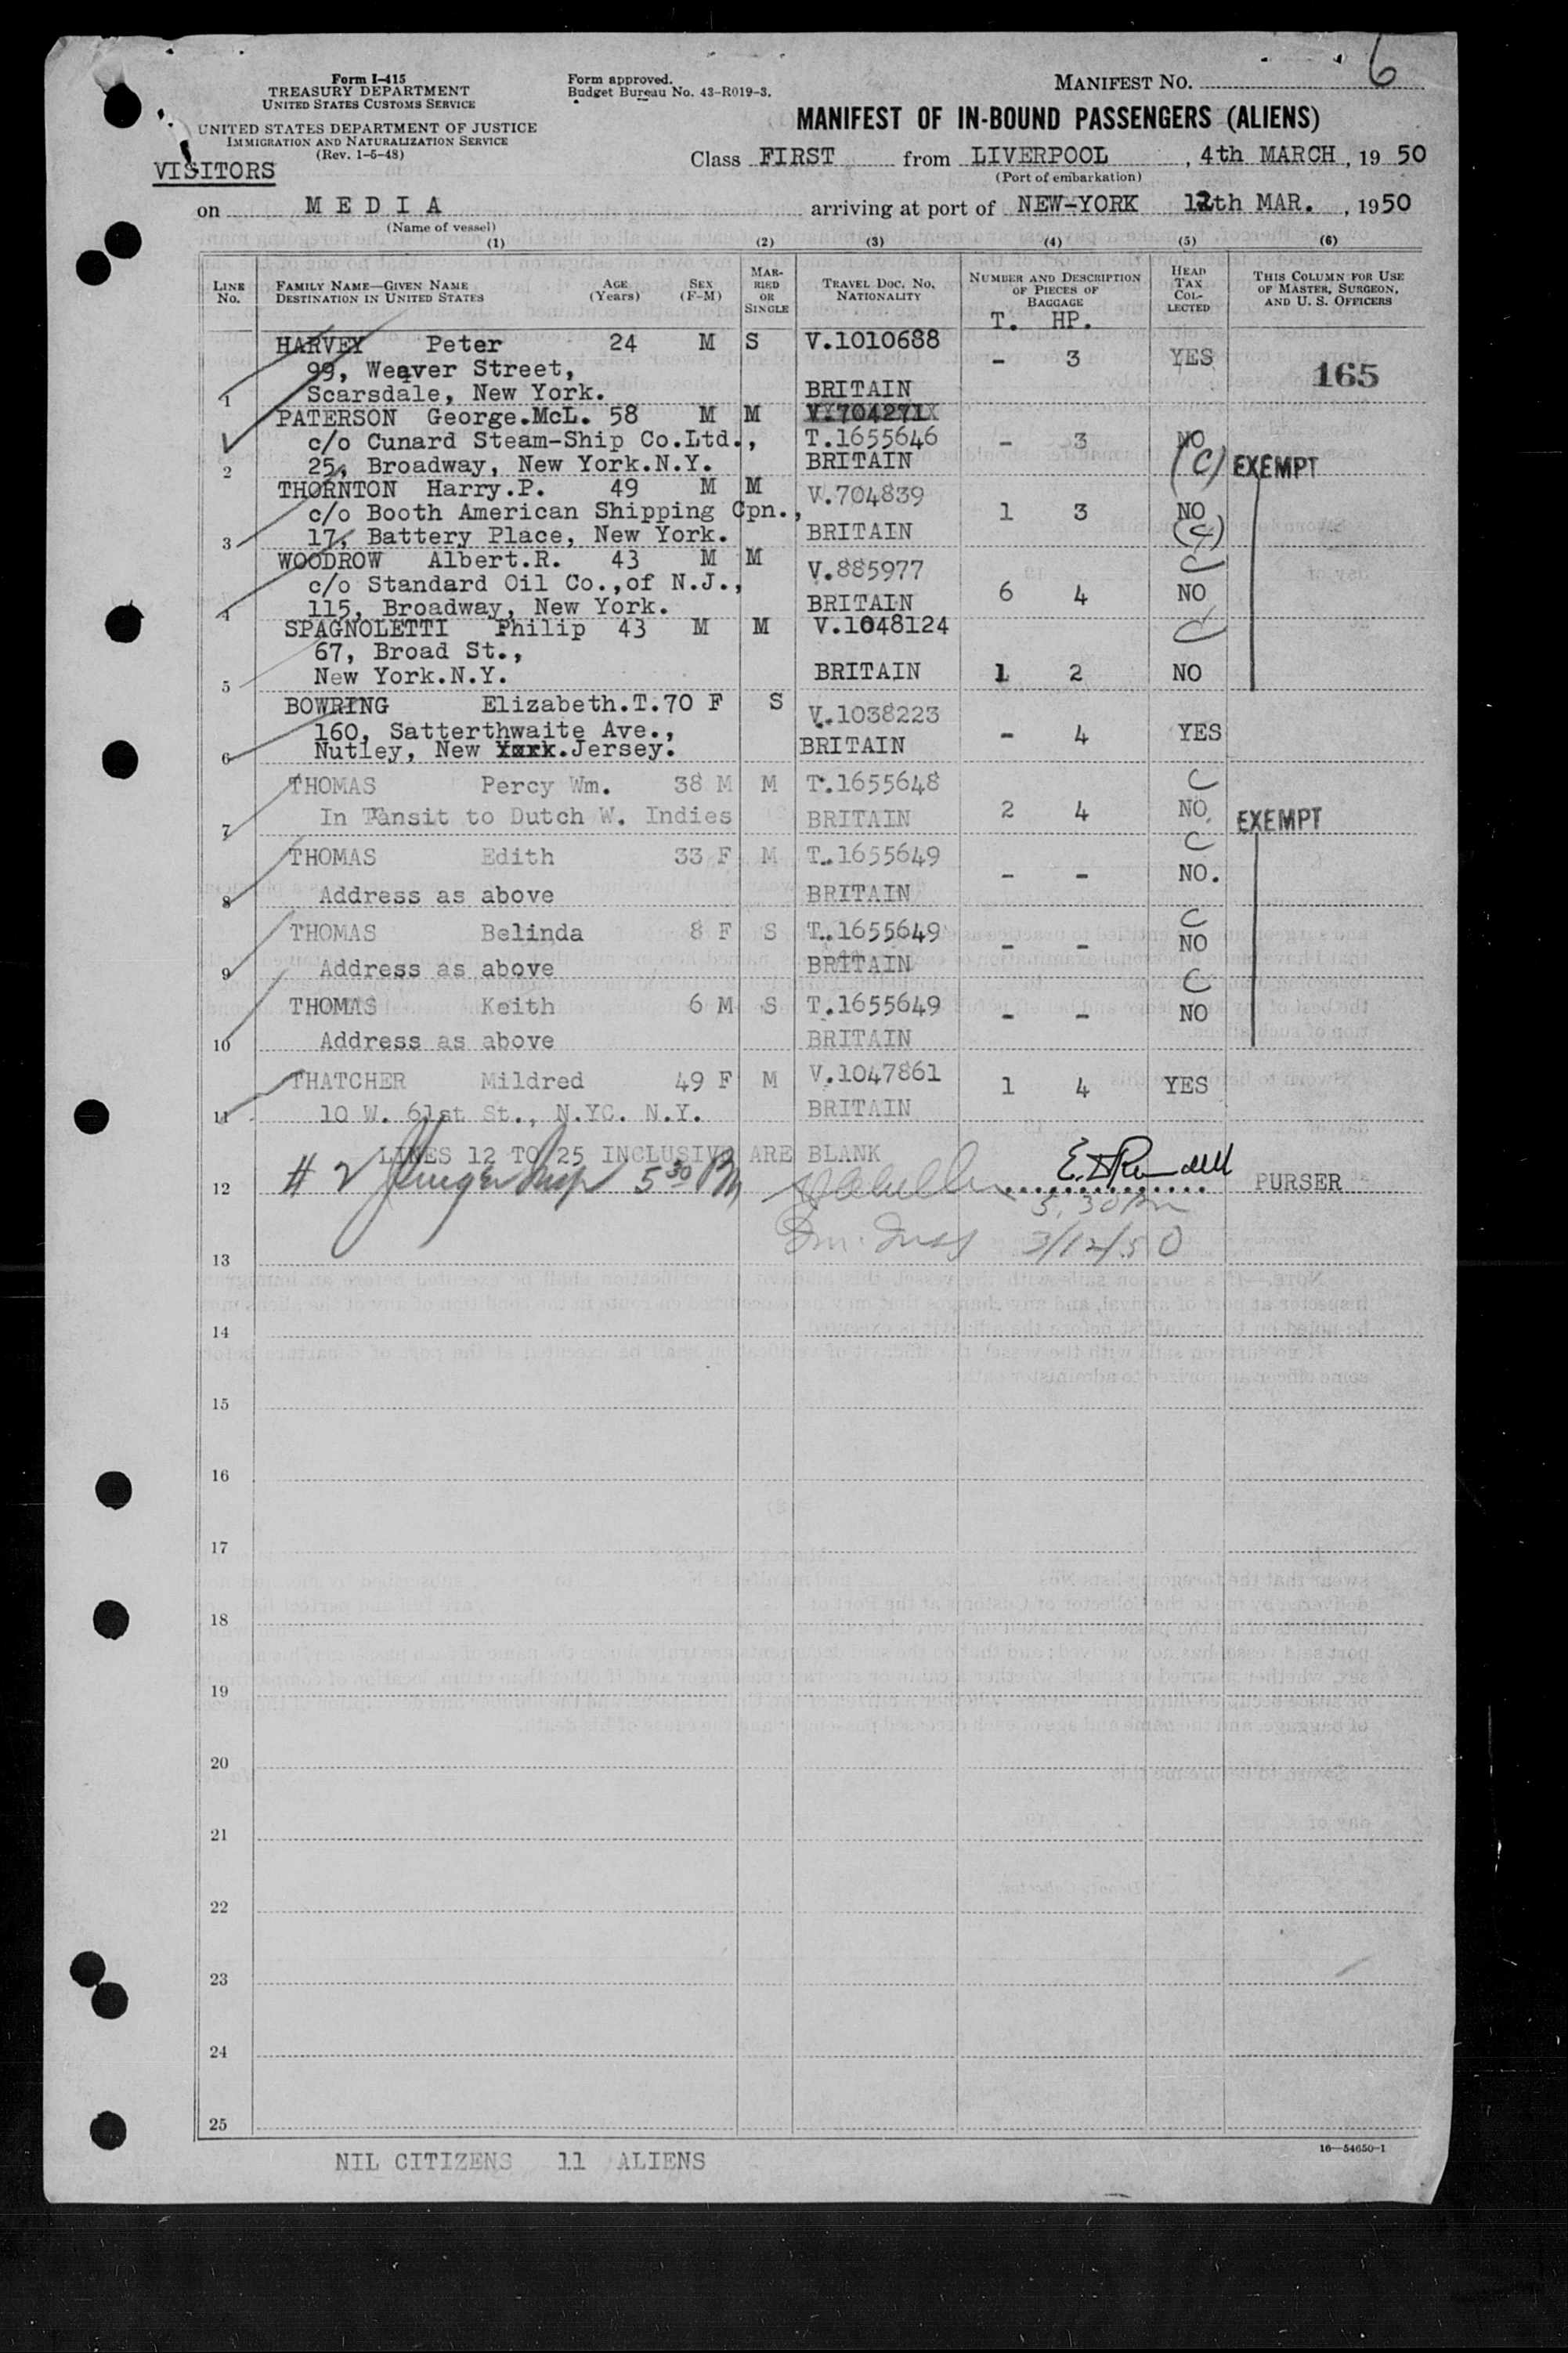 6
Form I-415
TREASURY DEPARTMENT
UNITED STATES CUSTOMS SERVICE
UNITED STATES DEPARTMENT OF JUSTICE
IMMIGRATION AND NATURALIZATION SERVICE
(Rev. 1-5-48)
VISITORS
Form approved.
Budget Bureau No. 43-R019-3.
MANIFEST NO.
MANIFEST OF IN-BOUND PASSENGERS (ALIENS)
Class FIRST from LIVERPOOL, 4th MARCH, 1950
(Port of embarkation)
on MEDIA arriving at port of NEW-YORK 12th MAR., 1950
(Name of vessel)
(1) (2) (3) (4) (5) (6)
LINE No. FAMILY NAME—GIVEN NAME DESTINATION IN UNITED STATES AGE (Years) SEX (F-M) MARRIED OR SINGLE TRAVEL DOC. NO. NATIONALITY NUMBER AND DESCRIPTION OF PIECES OF BAGGAGE HEAD TAX COLLECTED THIS COLUMN FOR USE OF MASTER, SURGEON, AND U. S. OFFICERS
T. HP.
HARVEY Peter 24 M S V.1010688 - 3 YES
99, Weaver Street, 165
1 Scarsdale, New York. BRITAIN
PATERSON George.McL. 58 M M V.704271X
c/o Cunard Steam-Ship Co.Ltd., T.1655646 - 3 NO
2 25, Broadway, New York.N.Y. BRITAIN (C) EXEMPT
THORNTON Harry.P. 49 M M V.704839
c/o Booth American Shipping Cpn., 1 3 NO
3 17, Battery Place, New York. BRITAIN (C)
WOODROW Albert.R. 43 M M V.885977 C
c/o Standard Oil Co.,of N.J., 6 4 NO
4 115, Broadway, New York. BRITAIN
SPAGNOLETTI Philip 43 M M V.1048124 C
67, Broad St.,
5 New York.N.Y. BRITAIN 1 2 NO
BOWRING Elizabeth.T.70 F S V.1038223
160, Satterthwaite Ave., - 4 YES
6 Nutley, New York.Jersey. BRITAIN
THOMAS Percy Wm. 38 M M T.1655648 C
7 In Tansit to Dutch W. Indies BRITAIN 2 4 NO. EXEMPT
THOMAS Edith 33 F M T.1655649 C
8 Address as above BRITAIN - - NO.
THOMAS Belinda 8 F S T.1655649 C
9 Address as above BRITAIN - - NO
THOMAS Keith 6 M S T.1655649 C
10 Address as above BRITAIN - - NO
THATCHER Mildred 49 F M V.1047861 1 4 YES
11 10 W. 61st St., N.YC. N.Y. BRITAIN
LINES 12 TO 25 INCLUSIVE ARE BLANK
12 # 2 Insp 5 30 PM PURSER
5.30 Pm
13 Im. Insp 3/12/50
14
15
16
17
18
19
20
21
22
23
24
25
16—54650-1
NIL CITIZENS 11 ALIENS